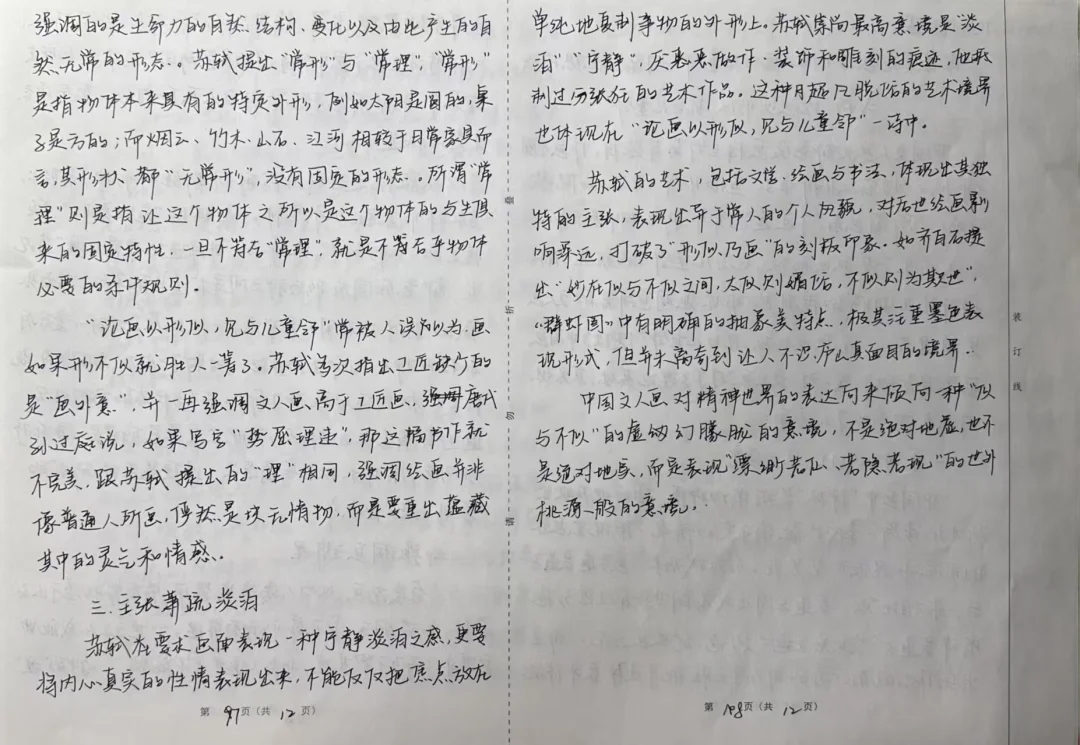 强调的是生命力的自然结构、变化以及由此产生的自
然无常的形态。苏轼提出“常形”与“常理”,“常形”
是指物体本来具有的特定外形,例如太阳是圆的,桌
子是方的;而烟云、竹木、山石、江河相较于日常家具而
言,其形状都“无常形”,没有固定的形态。所谓“常
理”则是指让这个物体之所以是这个物体的与生俱
来的固定特性,一旦不符合“常理”,就是不符合乎物体
必要的条件规则。
“论画以形似,见与儿童邻”常被人误为以为,画
如果形不似就胜人一等了。苏轼首次指出工匠缺少的
是“画外意”,并一再强调文人画高于工匠画,唐代
孙过庭说,如果写字“势屈理违”,那这幅书作就
不完美,跟苏轼提出的“理”相同,强调绘画并非
像普通人所画,俨然是块无情物,而是要画出蕴藏
其中的灵气和情感。
三.主张萧疏淡泊
苏轼在要求画面表现一种宁静淡泊之感,更要
将内心真实的性情表现出来,不能仅仅把焦点放在
第 7页(共 12 页)
单纯地复制事物的外形上。苏轼崇尚最高意境是“淡
泊”“宁静”,厌恶恶做作、装饰和雕刻的痕迹,他抵
制过分张狂的艺术作品。这种超凡脱俗的艺术境界
也体现在“论画以形似,见与儿童邻”一诗中。
苏轼的艺术,包括文学、绘画与书法,体现出其独
特的主张,表现出异于常人的个人风貌,对后世绘画影
响深远,打破了“形似乃画”的刻板印象。如齐白石提
出“妙在似与不似之间,太似则媚俗,不似则为欺世”,
《群虾图》中有明确的抽象美特点,极其注重墨色表
现形式,但并未离奇到让人不识庐山真面目的境界。
中国文人画对精神世界的表达向来倾向一种“似
与不似”的虚幻朦胧的意境,不是绝对地虚,也不
是绝对地实,而是表现“缥缈若仙、若隐若现”的世外
桃源一般的意境。
第 8页(共 12 页)
装
订
线